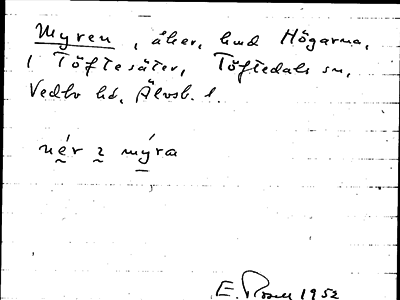 Myren, åker, hmd Högarna,
i Töftesäter, Töftedals sn,
Vedbo hd, Älvsb. l.
nér i mýra
E. Rosell 1952